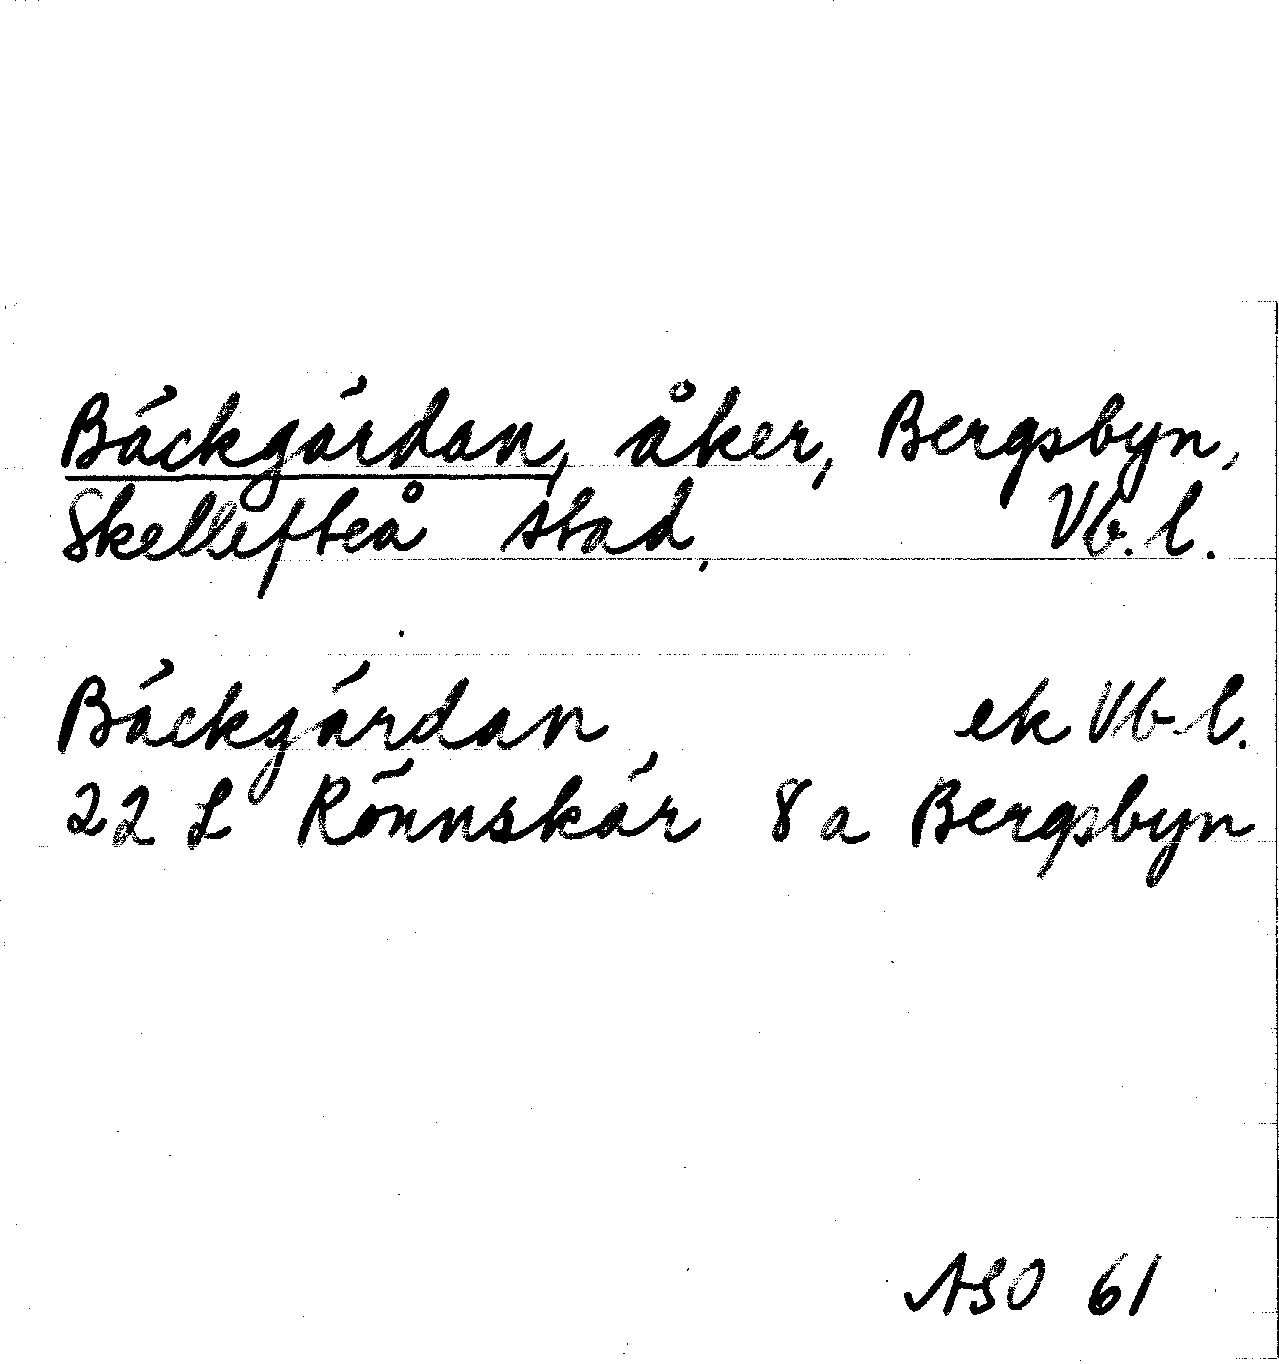 Bäckgärdan, åker, Bergsbyn,
Skellefteå stad, Vb. l.
Bäckgärdan ek Vb-l.
22 L Rönnskär 8 a Bergsbyn
ASO 61